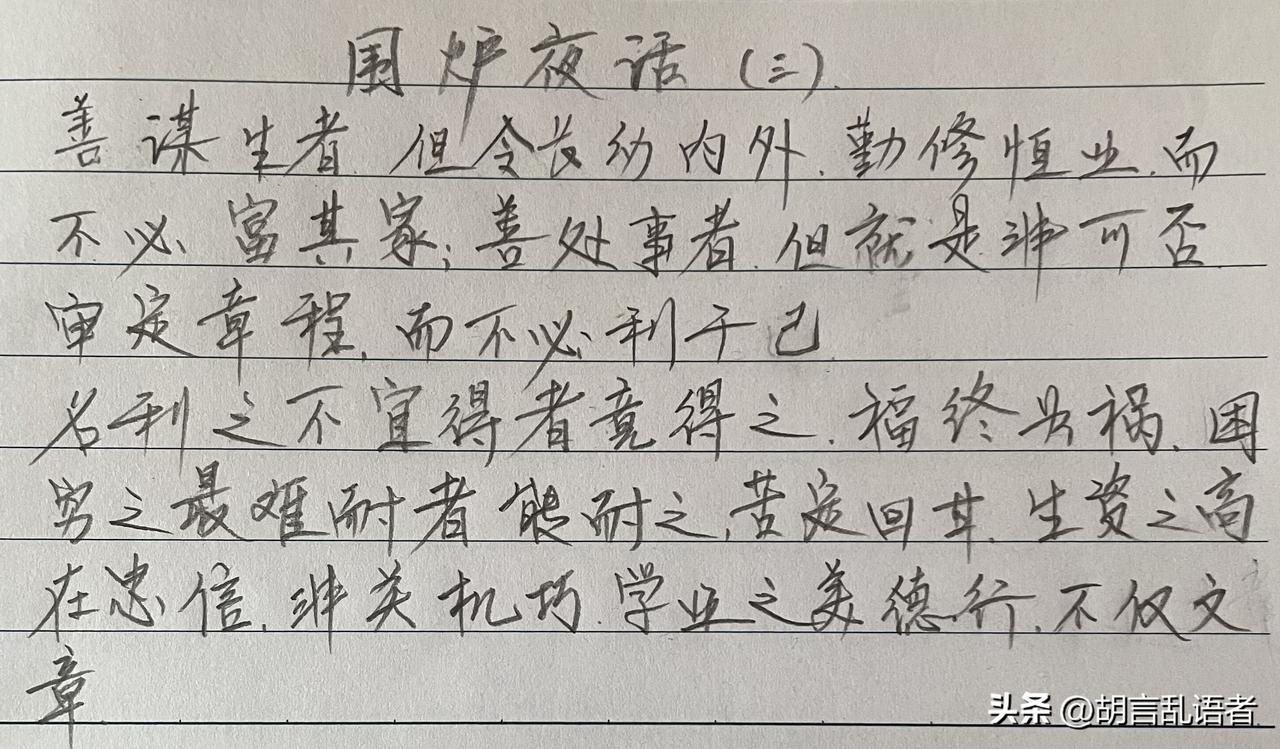 围炉夜话(三).
善谋生者.但令长幼内外.勤修恒业.而
不必富其家;善处事者.但就是非可否
审定章程.而不必利于己
名利之不宜得者竟得之.福终为祸.困
穷之最难耐者能耐之.苦定回甘.生资之高
在忠信.非关机巧.学业之美德行.不仅文
章
头条 @胡言乱语者